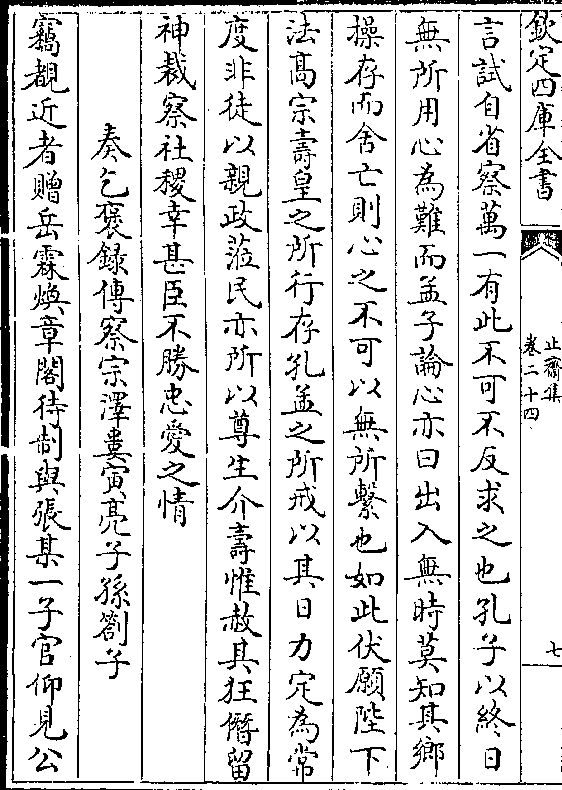 欽定四庫全書
止齋集
卷二十四
七
言試自省察萬一有此不可不反求之也孔子以終日
無所用心為難而孟子論心亦曰出入無時莫知其鄉
操存而舍亡則心之不可以無所繫也如此伏願陛下
法髙宗壽皇之所行存孔孟之所戒以其日力定為常
度非徒以親政蒞民亦所以尊生介壽惟赦其狂僭留
神裁察社稷幸甚臣不勝忠愛之情
奏乞褒録傅察宗澤婁寅亮子孫劄子
竊覩近者贈岳霖煥章閣待制與張某一子官仰見公